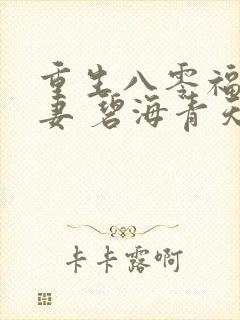 重生八零福
妻 碧海青天
卡卡露啊